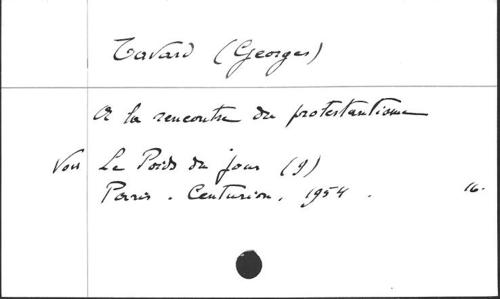 Tavard (Georges)
A la rencontre du protestantisme
Voir Le Poids du jour (9)
Paris. Centurion. 1954. 16.